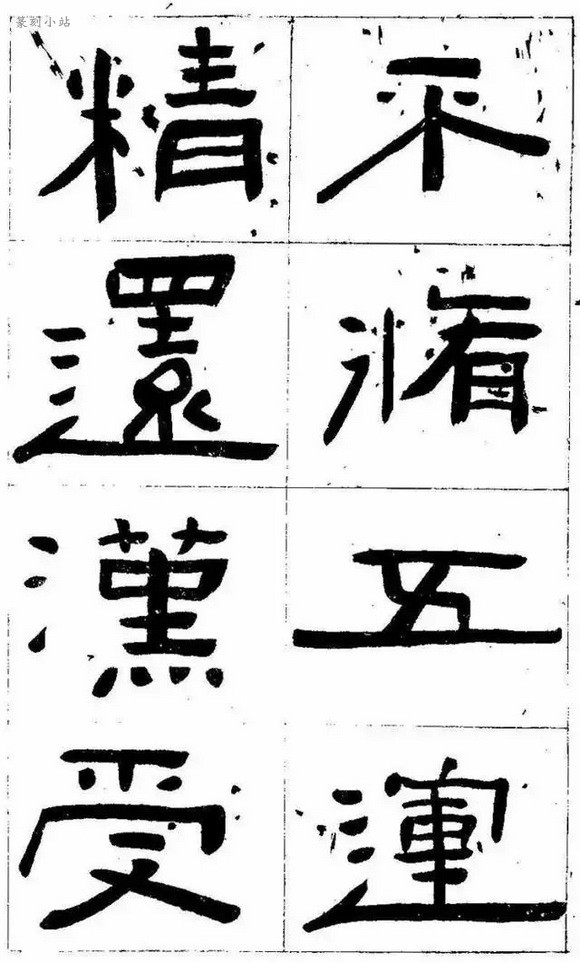 篆刻小站
五運
精還漢受